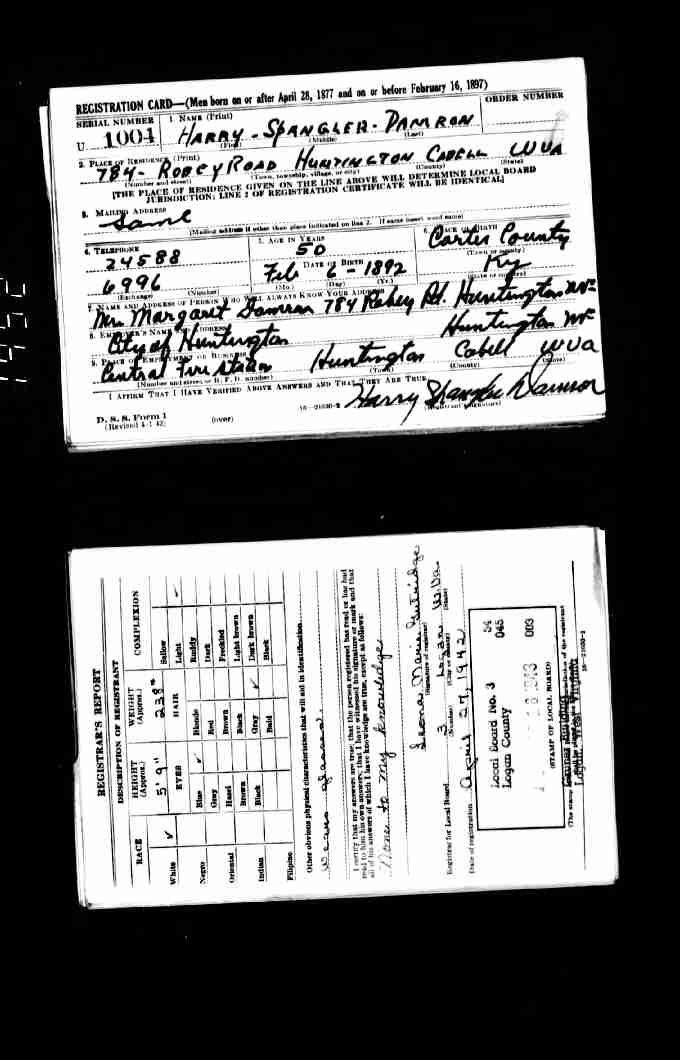 REGISTRATION CARD—(Men born on or after April 28, 1877 and on or before February 16, 1897)
SERIAL NUMBER 1. NAME (Print) ORDER NUMBER
U 1004 HARRY - SPANGLER - DAMRON
(First) (Middle) (Last)
2. PLACE OF RESIDENCE (Print)
784 - ROBEY ROAD HUNTINGTON CABELL W VA
(Number and street) (Town, township, village, or city) (County) (State)
[THE PLACE OF RESIDENCE GIVEN ON THE LINE ABOVE WILL DETERMINE LOCAL BOARD
JURISDICTION; LINE 2 OF REGISTRATION CERTIFICATE WILL BE IDENTICAL]
3. MAILING ADDRESS
Same
[Mailing address if other than place indicated on line 2. If same insert word same]
4. TELEPHONE 5. AGE IN YEARS 6. PLACE OF BIRTH
24588 50 Carter County
DATE OF BIRTH (Town or county)
6996 Feb 6 - 1892 Ky
(Exchange) (Number) (Mo.) (Day) (Yr.) (State or country)
7. NAME AND ADDRESS OF PERSON WHO WILL ALWAYS KNOW YOUR ADDRESS
Mrs. Margaret Damron 784 Robey Rd. Huntington WVa
8. EMPLOYER'S NAME AND ADDRESS
City of Huntington Huntington WVa
9. PLACE OF EMPLOYMENT OR BUSINESS
Central Fire Station Huntington Cabell W Va
(Number and street or R. F. D. number) (Town) (County) (State)
I AFFIRM THAT I HAVE VERIFIED ABOVE ANSWERS AND THAT THEY ARE TRUE.
Harry Spangler Damron
D. S. S. Form 1 (over) 16—21630-2 (Registrant's signature)
(Revised 4-1-42)
REGISTRAR'S REPORT
DESCRIPTION OF REGISTRANT
RACE HEIGHT (Approx.) WEIGHT (Approx.) COMPLEXION
5' 9" 238# Sallow
White ✓ EYES HAIR Light ✓
Negro Blue ✓ Blonde Ruddy
Gray Red Dark
Oriental Hazel Brown Freckled
Brown Black Light brown
Indian Black Gray ✓ Dark brown
Bald Black
Filipino
Other obvious physical characteristics that will aid in identification
Wears glasses
I certify that my answers are true; that the person registered has read or has had
read to him his own answers; that I have witnessed his signature or mark and that
all of his answers of which I have knowledge are true, except as follows:
None to my knowledge
Leona Marie
(Signature of registrar)
Registrar for Local Board 3 Logan W.Va.
(Number) (City or county) (State)
Date of registration April 27, 1942
Local Board No. 3 54
Logan County 045
003
(STAMP OF LOCAL BOARD)